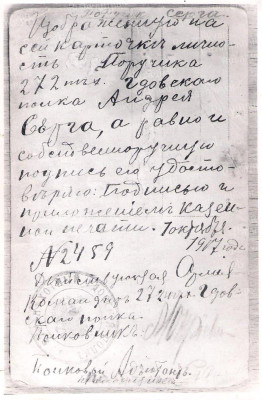 Изображенную на
сей карточкѣ лично-
сть Поручика
272 пѣх. Гдовскаго
полка Андрея
а равно и
собственноручную
подпись его удосто-
вѣряю: Подписью и
приложеніемъ казен-
ной печати. октября
1917 года
№ 2459
Командиръ 272 пѣх. Гдов-
скаго полка.
Полковникъ
Полковой Адъютантъ